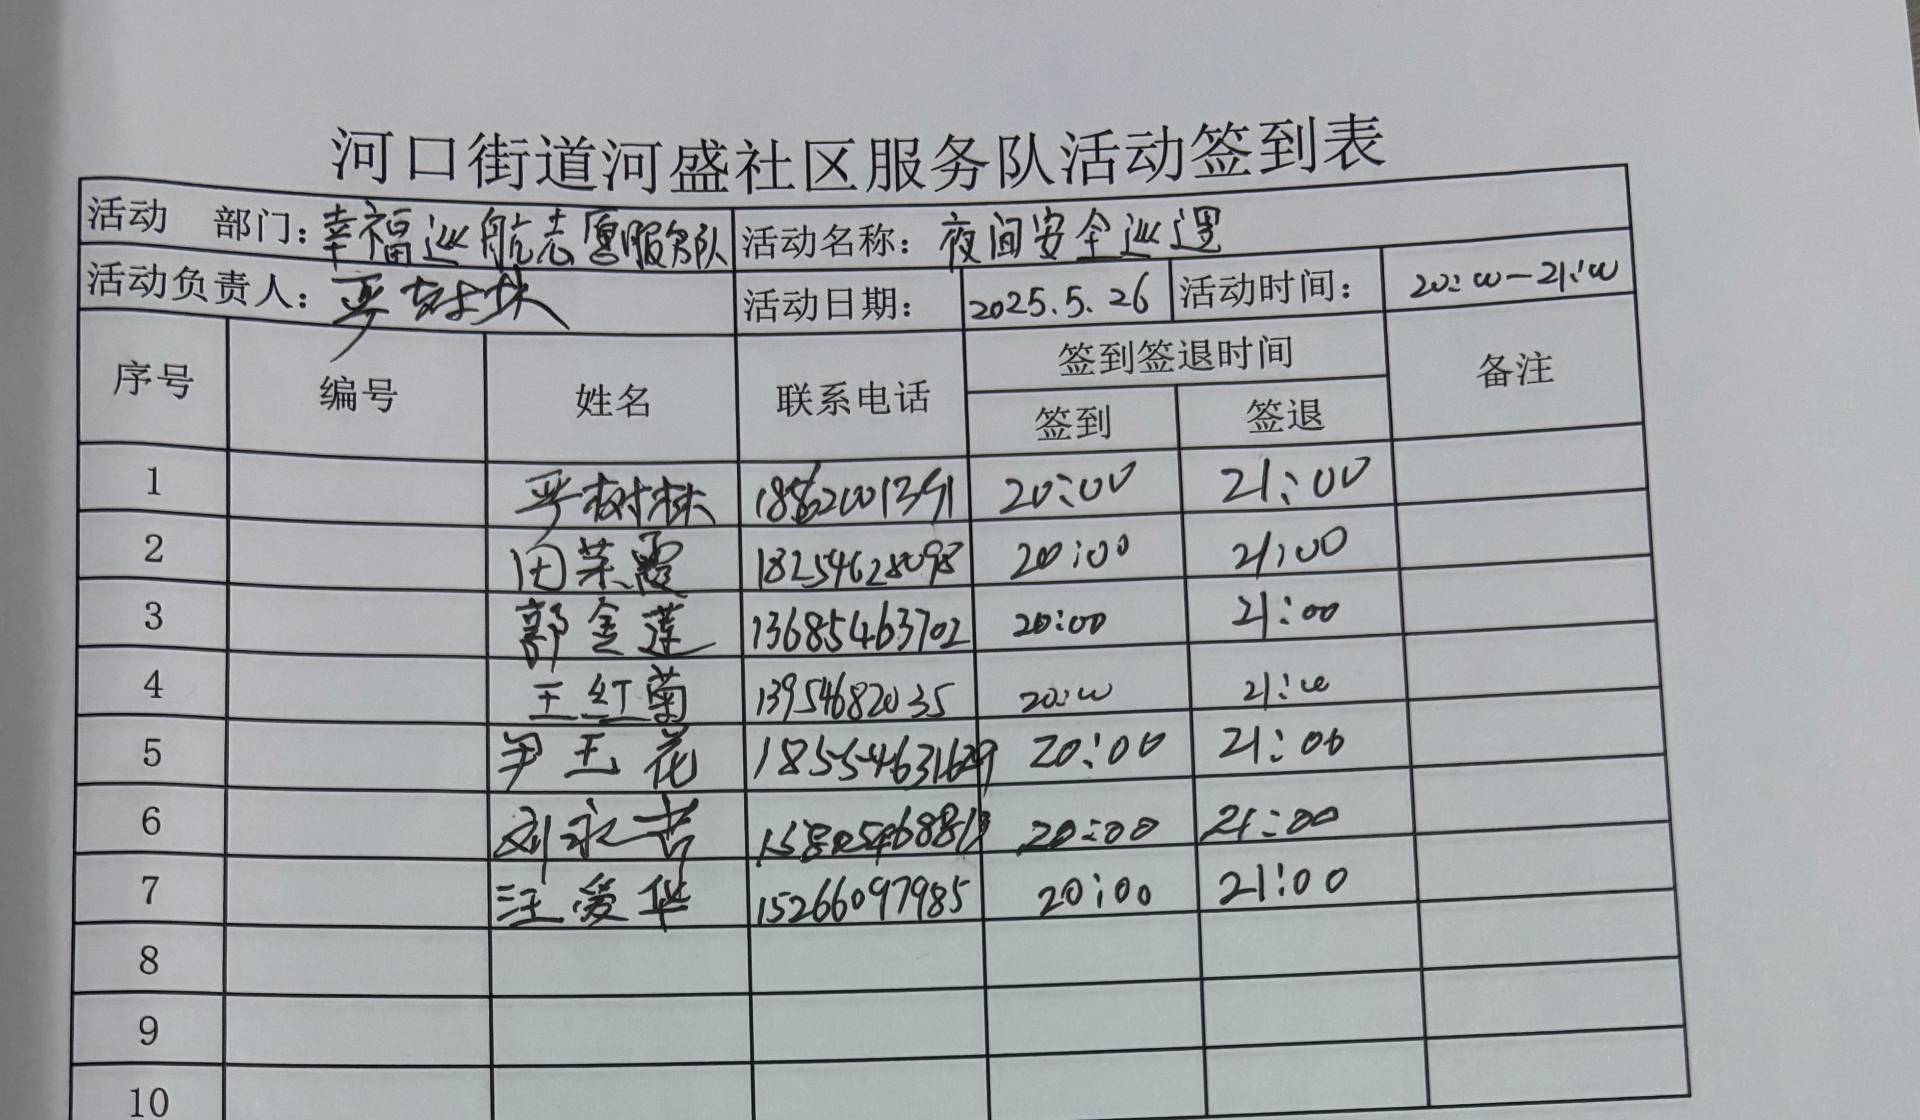 河口街道河盛社区服务队活动签到表
活动 部门：幸福巡航志愿服务队 活动名称：夜间安全巡逻
活动负责人：严树林 活动日期： 2025.5.26 活动时间： 20:00-21:00
序号 编号 姓名 联系电话 签到签退时间 备注
签到 签退
1 严树林 20:00 21:00
2 田荣霞 18254628098 20:00 21:00
3 郭金莲 13685463702 20:00 21:00
4 王红菊 13954682035 20:00 21:00
5 尹玉花 18554631629 20:00 21:00
6 刘永吉 20:00 21:00
7 汪爱华 15266097985 20:00 21:00
8
9
10